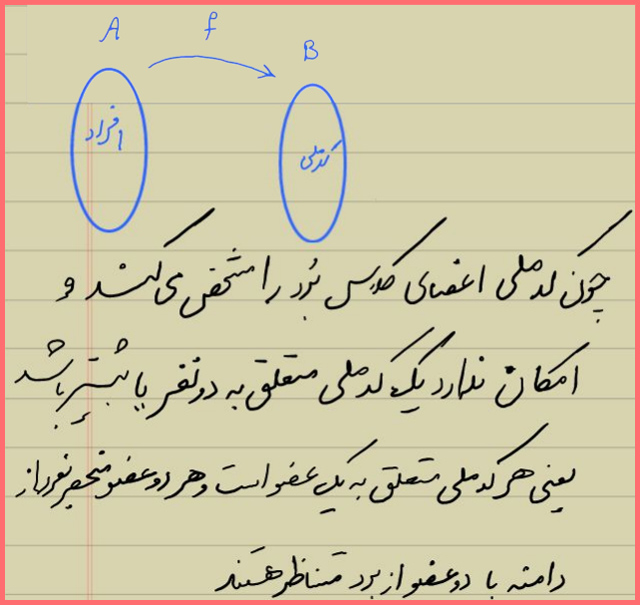 A f B
افراد کدملی
چون کدملی اعضای کلاس برد را مشخص می کنند و
امکان ندارد یک کدملی متعلق به دو نفر یا بیشتر باشد
یعنی هر کدملی متعلق به یک عضو است و هر دو عضو منحصر بفرد از
دامنه با دو عضو از برد متناظر هستند